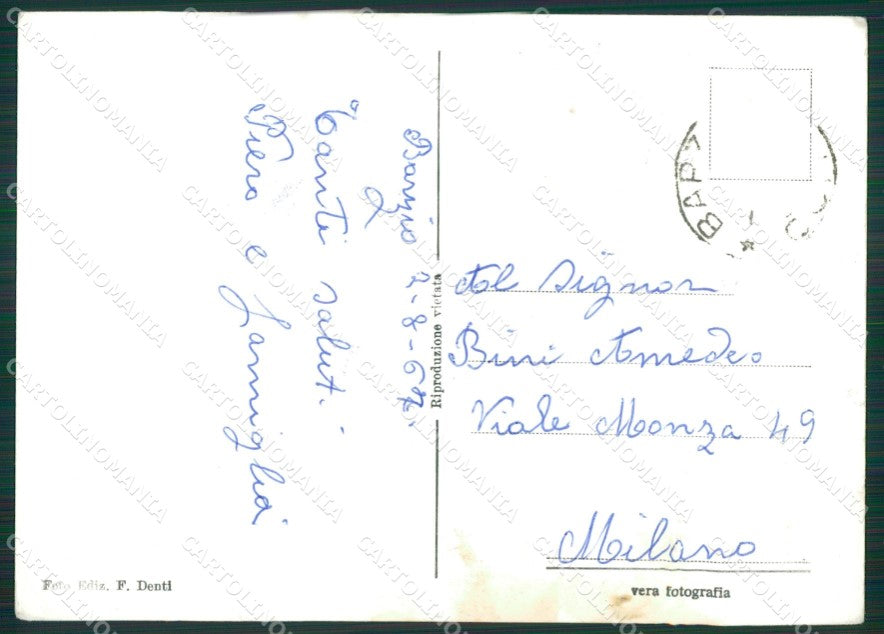 Barzio 2-8-67.
Tanti saluti
Piero e famiglia
Riproduzione vietata
BARZ
Al Signor
Bini Amedeo
Viale Monza 49
Milano
Foto Ediz. F. Denti
vera fotografia
CARTOLINOMANIA